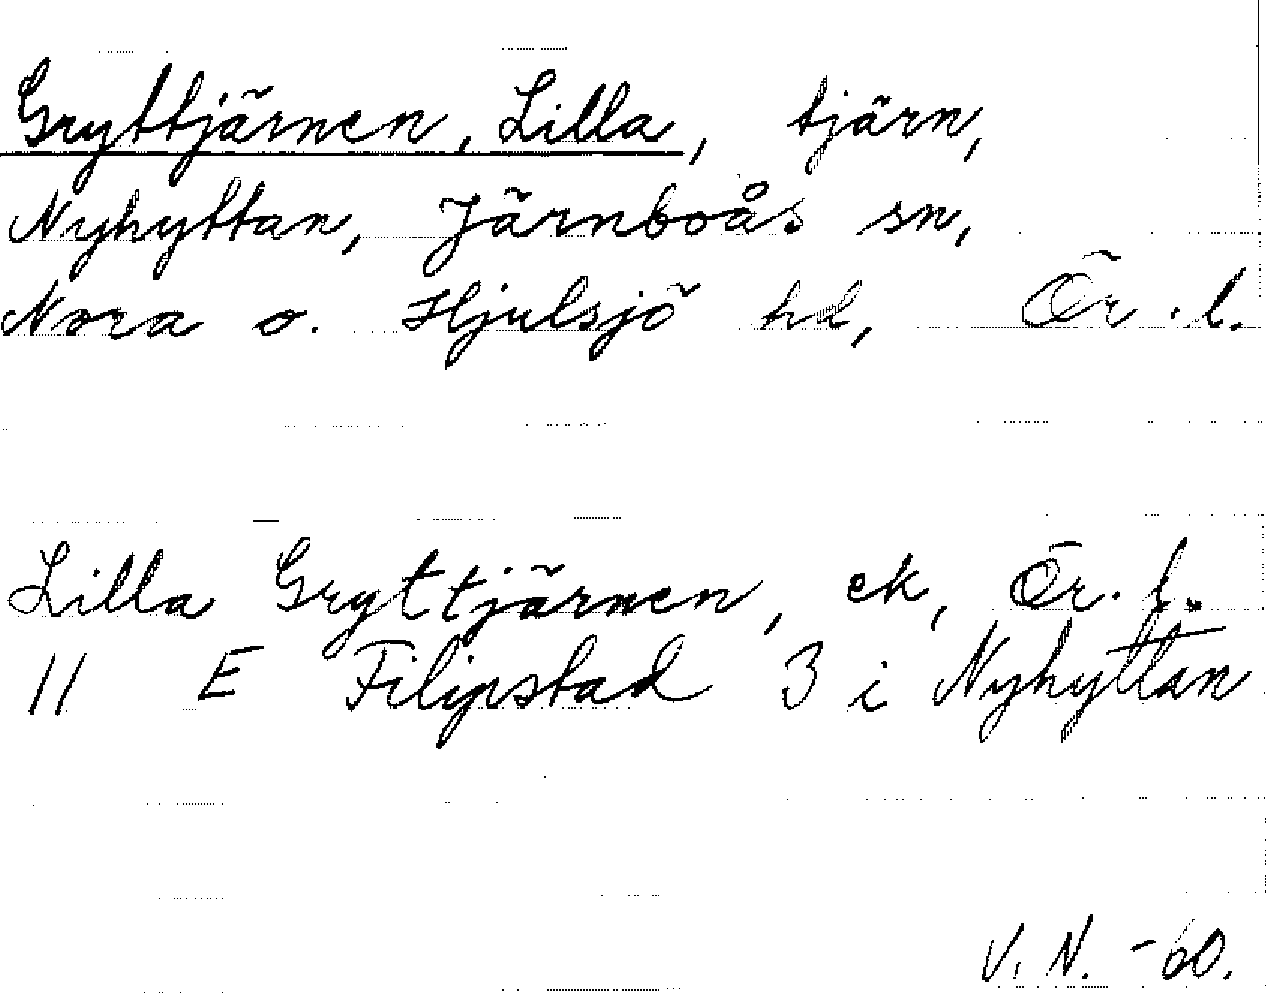 Gryttjärnen, Lilla, tjärn,
Nyhyttan, Järnboås sn,
Nora o. Hjulsjö hd, Ör. l.
Lilla Gryttjärnen, ek, Ör. l.
11 E Filipstad 3 i Nyhyttan
V. N. -60.